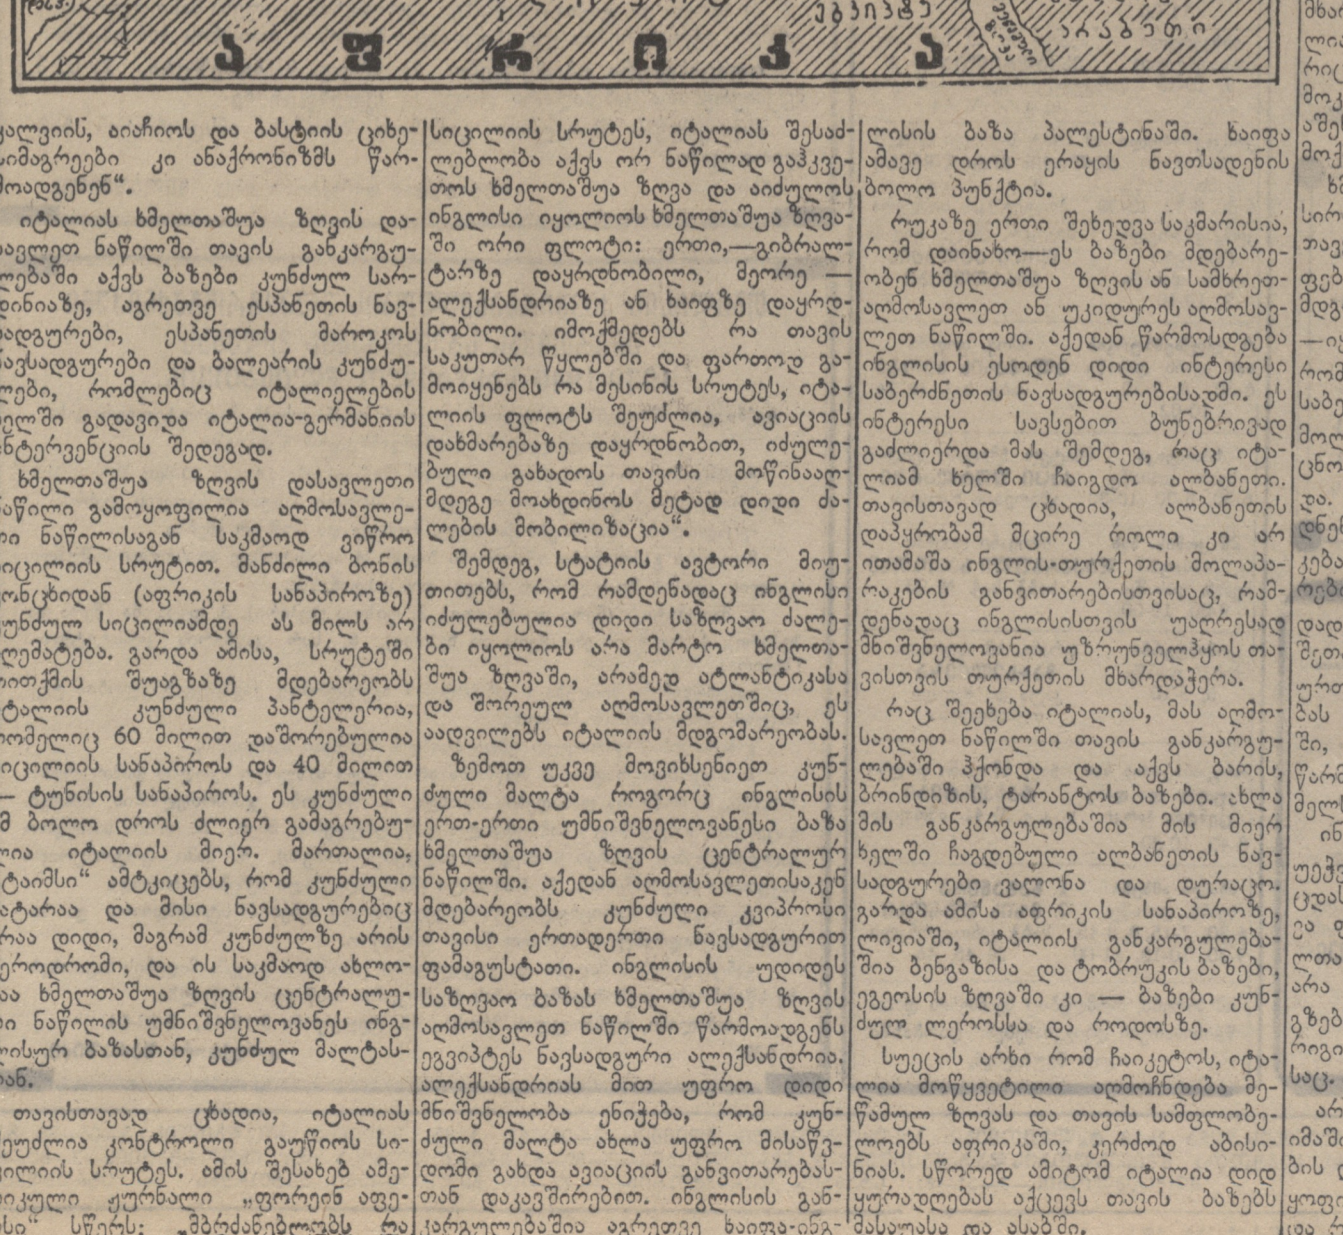 ეგვიპტე
არაბეთი
აფრიკა
კალვიის, აიაჩიოს და ბასტიის ციხე-
სიმაგრეები კი ანაქრონიზმს წარ-
მოადგენენ“.
იტალიას ხმელთაშუა ზღვის და-
სავლეთ ნაწილში თავის განკარგუ-
ლებაში აქვს ბაზები კუნძულ სარ-
დინიაზე, აგრეთვე ესპანეთის ნავ-
სადგურები, ესპანეთის მაროკოს
ნავსადგურები და ბალეარის კუნძუ-
ლები, რომლებიც იტალიელების
ხელში გადავიდა იტალია-გერმანიის
ინტერვენციის შედეგად.
ხმელთაშუა ზღვის დასავლეთი
ნაწილი გამოყოფილია აღმოსავლე-
თი ნაწილისაგან საკმაოდ ვიწრო
სიცილიის სრუტით. მანძილი ბონის
კონცხიდან (აფრიკის სანაპიროზე)
კუნძულ სიცილიამდე ას მილს არ
აღემატება. გარდა ამისა, სრუტეში
თითქმის შუაგზაზე მდებარეობს
იტალიის კუნძული პანტელერია,
რომელიც 60 მილით დაშორებულია
სიცილიის სანაპიროს და 40 მილით
— ტუნისის სანაპიროს. ეს კუნძული
ამ ბოლო დროს ძლიერ გამაგრებუ-
ლია იტალიის მიერ. მართალია,
„ტაიმსი“ ამტკიცებს, რომ კუნძული
პატარაა და მისი ნავსადგურებიც
არაა დიდი, მაგრამ კუნძულზე არის
აეროდრომი, და ის საკმაოდ ახლო-
საა ხმელთაშუა ზღვის ცენტრალუ-
რი ნაწილის უმნიშვნელოვანეს ინგ-
ლისურ ბაზასთან, კუნძულ მალტას-
თან.
თავისთავად ცხადია, იტალიას
შეუძლია კონტროლი გაუწიოს სი-
ცილიის სრუტეს. ამის შესახებ ამე-
რიკული ჟურნალი „ფორეინ აფე-
რსი“ სწერს: „მბრძანებლობს რა
სიცილიის სრუტეს, იტალიას შესაძ-
ლებლობა აქვს ორ ნაწილად გაჰკვე-
თოს ხმელთაშუა ზღვა და აიძულოს
ინგლისი იყოლიოს ხმელთაშუა ზღვა-
ში ორი ფლოტი: ერთი,—გიბრალ-
ტარზე დაყრდნობილი, მეორე —
ალექსანდრიაზე ან ხაიფზე დაყრდ-
ნობილი. იმოქმედებს რა თავის
საკუთარ წყლებში და ფართოდ გა-
მოიყენებს რა მესინის სრუტეს, იტა-
ლიის ფლოტს შეუძლია, ავიაციის
დახმარებაზე დაყრდნობით, იძულე-
ბული გახადოს თავისი მოწინააღ-
მდეგე მოახდინოს მეტად დიდი ძა-
ლების მობილიზაცია“.
შემდეგ, სტატიის ავტორი მიუ-
თითებს, რომ რამდენადაც ინგლისი
იძულებულია დიდი საზღვაო ძალე-
ბი იყოლიოს არა მარტო ხმელთა-
შუა ზღვაში, არამედ ატლანტიკასა
და შორეულ აღმოსავლეთშიც, ეს
აადვილებს იტალიის მდგომარეობას.
ზემოთ უკვე მოვიხსენიეთ კუნ-
ძული მალტა როგორც ინგლისის
ერთ-ერთი უმნიშვნელოვანესი ბაზა
ხმელთაშუა ზღვის ცენტრალურ
ნაწილში. აქედან აღმოსავლეთისაკენ
მდებარეობს კუნძული კვიპროსი
თავისი ერთადერთი ნავსადგურით
ფამაგუსტათი. ინგლისის უდიდეს
საზღვაო ბაზას ხმელთაშუა ზღვის
აღმოსავლეთ ნაწილში წარმოადგენს
ეგვიპტეს ნავსადგური ალექსანდრია.
ალექსანდრიას მით უფრო დიდი
მნიშვნელობა ენიჭება, რომ კუნ-
ძული მალტა ახლა უფრო მისაწვ-
დომი გახდა ავიაციის განვითარებას-
თან დაკავშირებით. ინგლისის გან-
კარგულებაშია აგრეთვე ხაიფა-ინგ-
ლისის ბაზა პალესტინაში. ხაიფა
ამავე დროს ერაყის ნავთსადენის
ბოლო პუნქტია.
რუკაზე ერთი შეხედვა საკმარისია,
რომ დაინახო—ეს ბაზები მდებარე-
ობენ ხმელთაშუა ზღვის ან სამხრეთ-
აღმოსავლეთ ან უკიდურეს აღმოსავ-
ლეთ ნაწილში. აქედან წარმოსდგება
ინგლისის ესოდენ დიდი ინტერესი
საბერძნეთის ნავსადგურებისადმი. ეს
ინტერესი სავსებით ბუნებრივად
გაძლიერდა მას შემდეგ, რაც იტა-
ლიამ ხელში ჩაიგდო ალბანეთი.
თავისთავად ცხადია, ალბანეთის
დაპყრობამ მცირე როლი კი არ
ითამაშა ინგლის-თურქეთის მოლაპა-
რაკების განვითარებისთვისაც, რამ-
დენადაც ინგლისისთვის უაღრესად
მნიშვნელოვანია უზრუნველჰყოს თა-
ვისთვის თურქეთის მხარდაჭერა.
რაც შეეხება იტალიას, მას აღმო-
სავლეთ ნაწილში თავის განკარგუ-
ლებაში ჰქონდა და აქვს ბარის,
ბრინდიზის, ტარანტოს ბაზები. ახლა
მის განკარგულებაშია მის მიერ
ხელში ჩაგდებული ალბანეთის ნავ-
სადგურები ვალონა და დურაცო.
გარდა ამისა აფრიკის სანაპიროზე,
ლივიაში, იტალიის განკარგულება-
შია ბენგაზისა და ტობრუკის ბაზები,
ეგეოსის ზღვაში კი — ბაზები კუნ-
ძულ ლეროსსა და როდოსზე.
სუეცის არხი რომ ჩაიკეტოს, იტა-
ლია მოწყვეტილი აღმოჩნდება მე-
წამულ ზღვას და თავის სამფლობე-
ლოებს აფრიკაში, კერძოდ აბისი-
ნიას. სწორედ ამიტომ იტალია დიდ
ყურადღებას აქცევს თავის ბაზებს
მასაუასა და ასაბში.